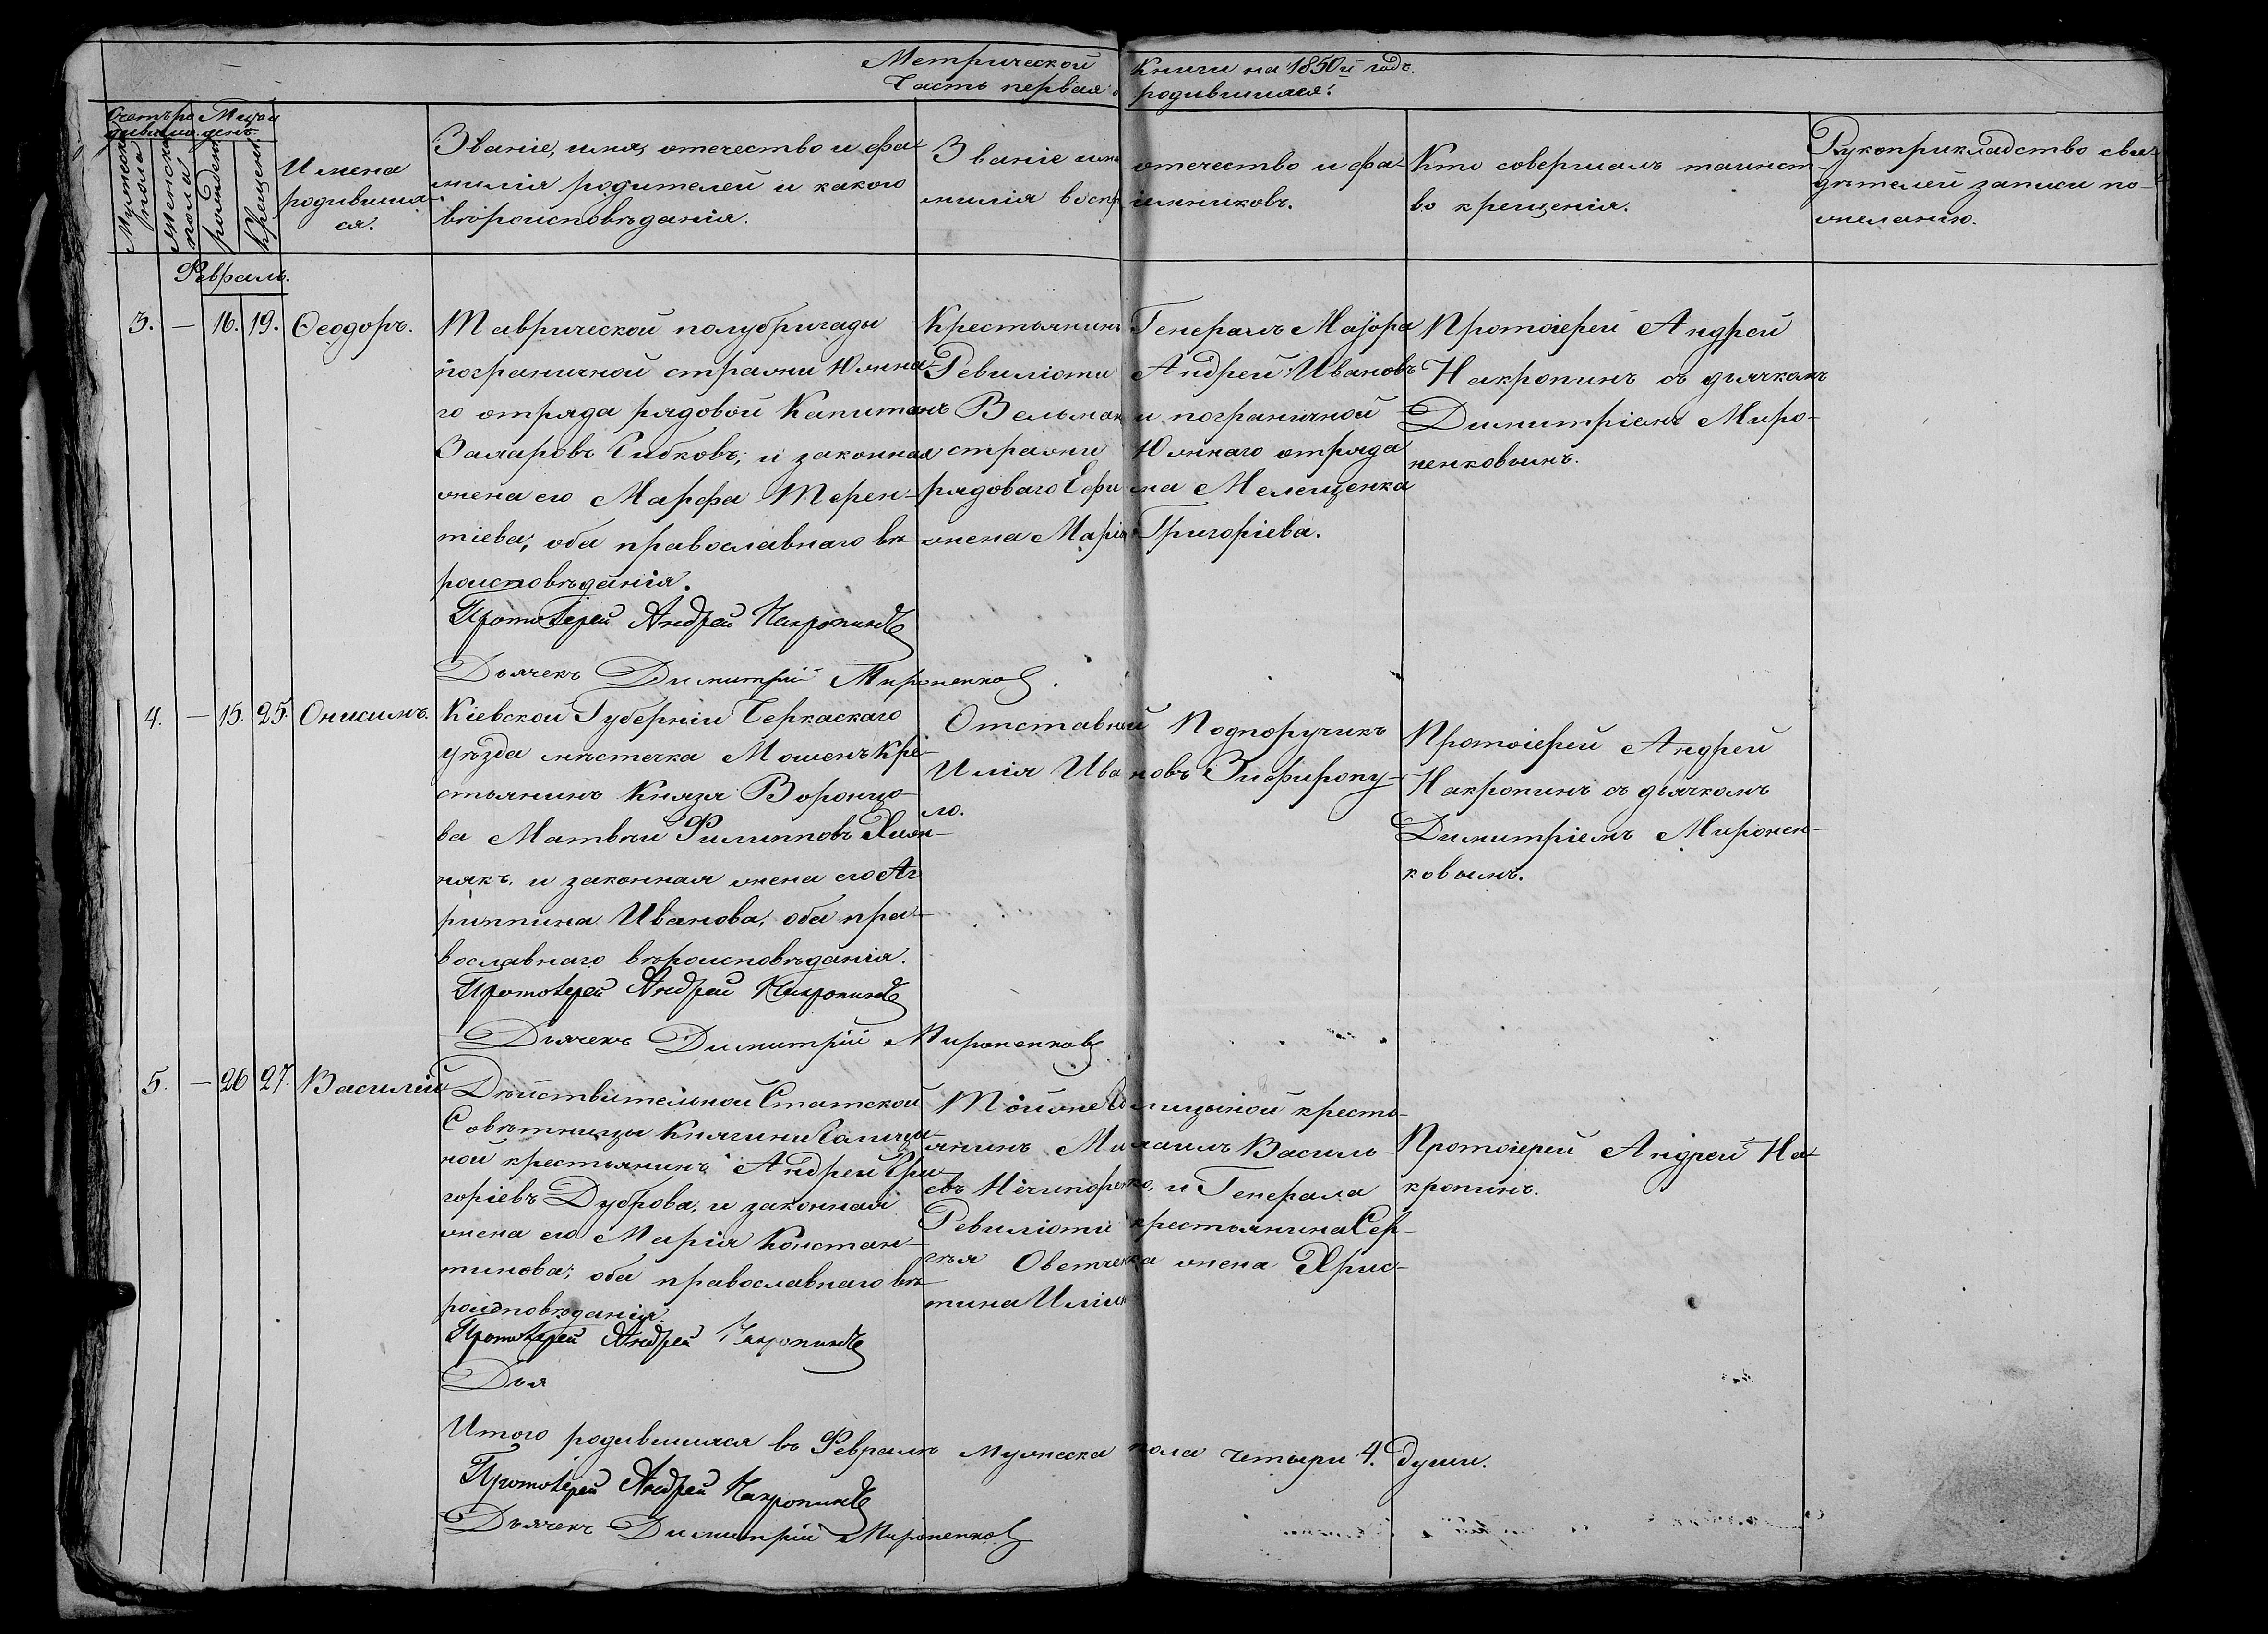 Метрической Книги на 1850й годъ.
Часть первая о родившихся.
Счетъ ро
дившихся.
Мужеска
пола
Женска
пола
Месяц и
день.
рожденія
Крещенія
Имена
родивших
ся.
Званіе, имя, отечество и фа
милія родителей и какого
вѣроисповѣданія.
Званіе имя отечество и фа-
милія воспріимниковъ.
Кто совершалъ таинст
во крещенія.
Рукоприкладство сви-
дѣтелей записи по-
желанію.
Февраль.
3. — 16. 19. Ѳеодоръ.
Таврической полубригады
пограничной стражи Южна-
го отряда рядовой Капитонъ
Захаровъ Гибковъ, и законная
жена его Марфа Терен-
тіева, оба православнаго вѣ-
роисповѣданія.
Протоіерей Андрей Накропинъ
Дьячекъ Димитрій Мироненковъ.
Крестьянинъ Генералъ Маіора
Ревиліоти Андрей Ивановъ
и пограничной
стражи Южнаго отряда
рядоваго Ефима Мелещенка
жена Марія Григоріева.
Протоіерей Андрей
Накропинъ съ дьячкомъ
Димитріемъ Миро-
ненковымъ.
4. — 15. 25. Онисимъ.
Кіевской Губерніи Черкаскаго
уѣзда мѣстечка Мошенъ Кре-
стьянинъ Князя Воронцо-
ва Матвѣй Филипповъ
някъ, и законная жена его Аг
риппина Иванова, оба пра-
вославнаго вѣроисповѣданія.
Протоіерей Андрей Накропинъ
Дьячекъ Димитрій Мироненковъ
Отставный Подпоручикъ
Илія Ивановъ Зифиропу-
ло.
Протоіерей Андрей
Накропинъ съ дьячкомъ
Димитріемъ Миронен-
ковымъ.
5. — 26 27. Василій
Дѣйствительной Статской
Совѣтницы Княгини Галицы-
ной крестьянинъ Андрей Гри
горіевъ Дуброва, и законная
жена его Марія Констан-
тинова, оба православнаго вѣ-
роисповѣданія.
Протоіерей Андрей Накропинъ
Дья
Той же Голицыной кресть-
янинъ Михаилъ Василь-
евъ Нечипоренко, и Генерала
Ревиліоти крестьянина Сер-
гѣя Оветченка жена Хрис-
тина Иліина
Протоіерей Андрей На-
кропинъ.
Итого родившихся въ Февралѣ мужеска пола четыри 4. души.
Протоіерей Андрей Накропинъ
Дьячекъ Димитрій Мироненковъ